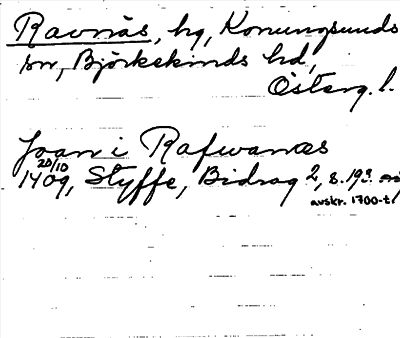 Ravnäs, hg, Konungsunds
sn, Björkekinds hd,
Österg. l.
Joan i Rafwanæs
20/10
1409, Styffe, Bidrag 2, s. 193
avskr. 1700-t